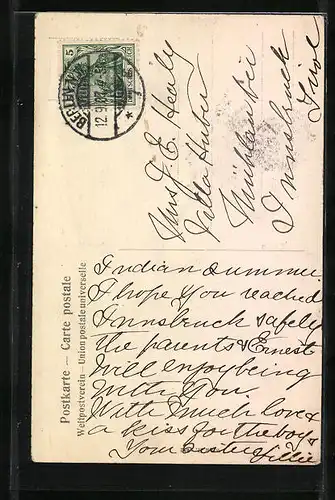 Postkarte — Carte postale
Weltpostverein — Union postale universelle
BERLIN
12.9.07.4-5N
5
Mrs J. E. Healy
Villa Huber
Mühlau bei
Innsbruck
Tirol
Indian summer
I hope you reached
Innsbruck safely
the parents & Ernest
Will enjoy being
with You.
With much love &
a kiss for the boys
Your sister Lillie